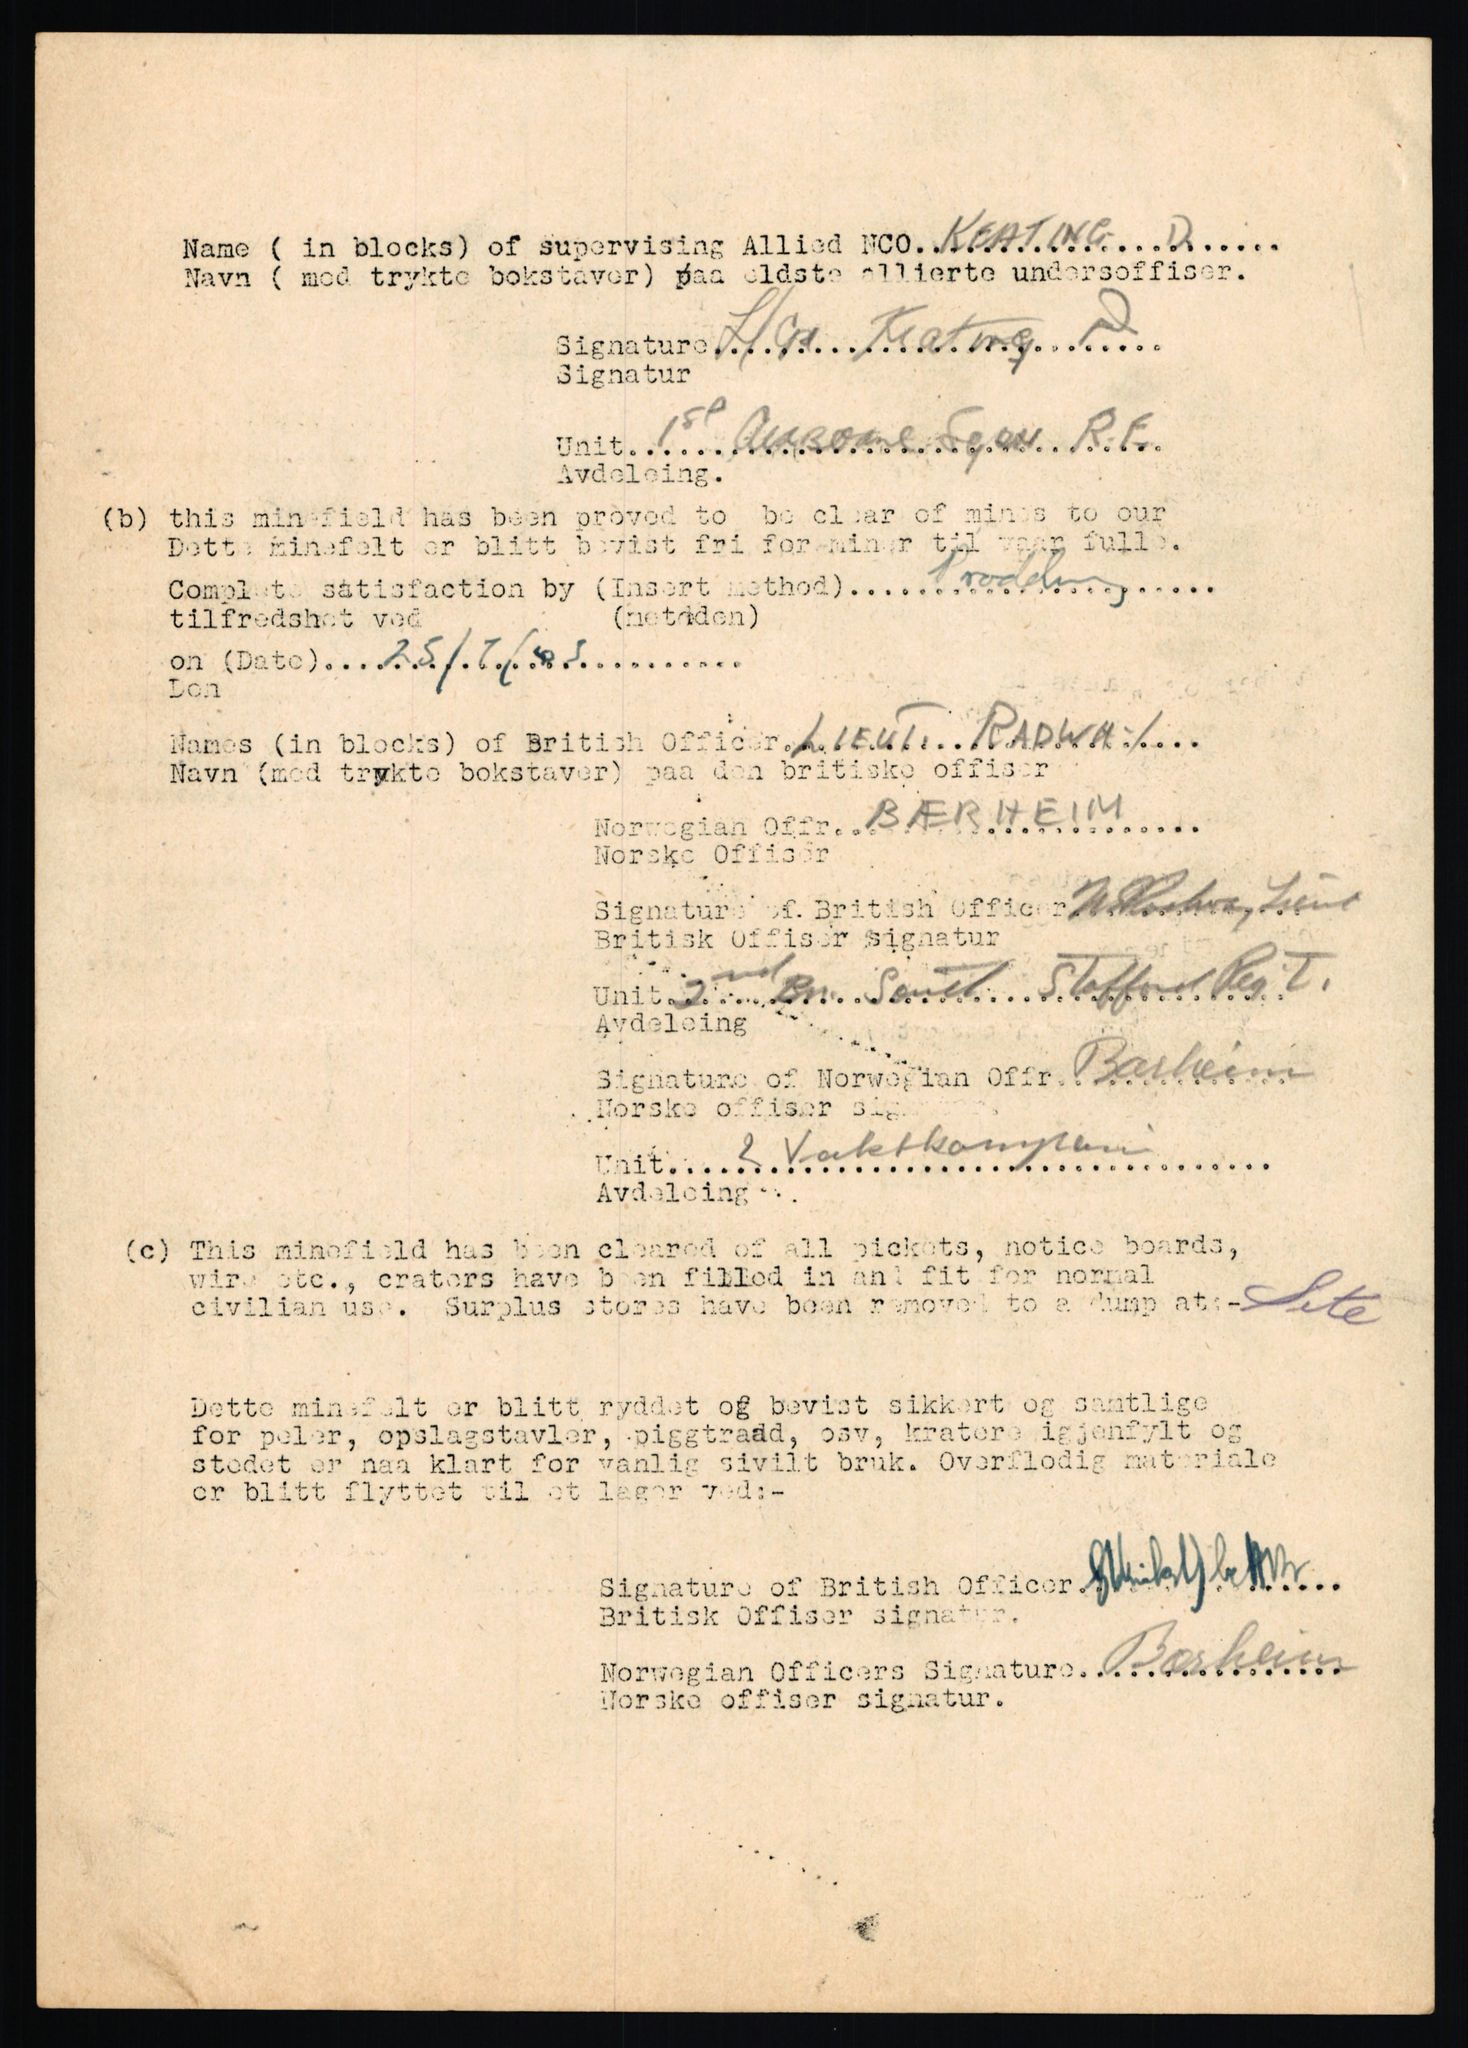 Name ( in blocks) of supervising Allied NCO. KEATING D.
Navn ( med trykte bokstaver) paa eldste allierte undersoffiser.
Signature L/Cpl Keating D
Signatur
Unit. 1st Airborne Sqn R.E.
Avdeleing.
(b) this minefield has been proved to be clear of mines to our
Dette minefelt er blitt bevist fri for miner til vaar fulle.
Complete satisfaction by (Insert method) Prodding
tilfredshet ved (metoden)
on (Date) 25/7/45
Den
Names (in blocks) of British Officer. LIEUT. RADWAY
Navn (med trykte bokstaver) paa den britiske offiser
Norwegian Offr. BÆRHEIM
Norske Offiser
Signature of British Officer Lieut
Britisk Offiser signatur
Unit 2nd Bn. South Stafford Reg't.
Avdeleing
Signature of Norwegian Offr. Bærheim
Norske offiser
Unit. 2 Vaktkompani
Avdeleing
(c) This minefield has been cleared of all pickets, notice boards,
wire etc., craters have been filled in and fit for normal
civilian use. Surplus stores have been removed to a dump at:- Site
Dette minefelt er blitt ryddet og bevist sikkert og samtlige
for peler, opslagstavler, piggtraad, osv, kratere igjenfylt og
stedet er naa klart for vanlig sivilt bruk. Overflodig materiale
er blitt flyttet til et lager ved:-
Signature of British Officer.
Britisk Offiser signatur.
Norwegian Officers Signature. Bærheim
Norske offiser signatur.